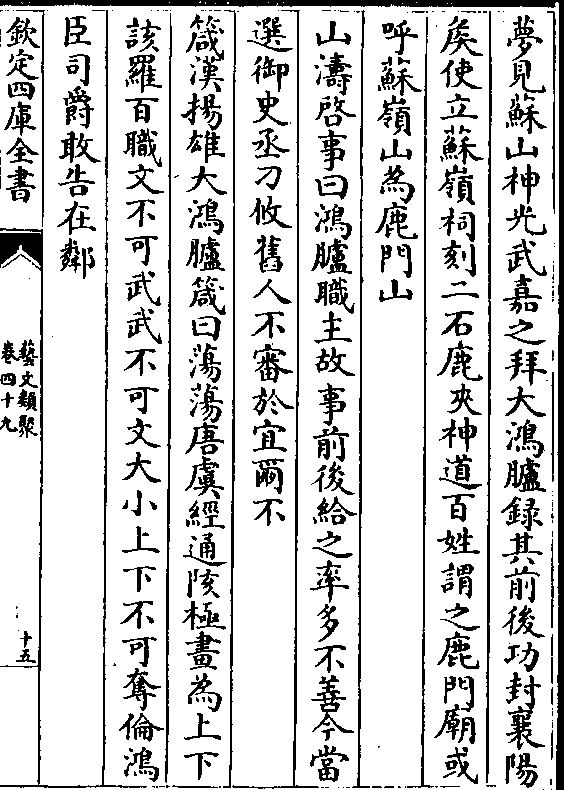 夢見蘇山神光武嘉之拜大鴻臚録其前後功封襄陽
矦使立蘇嶺祠刻二石鹿夾神道百姓謂之鹿門廟或
呼蘇嶺山為鹿門山
山濤啓事曰鴻臚職主故事前後給之率多不善今當
選御史丞刁攸舊人不審於宜爾不
箴漢揚雄大鴻臚箴曰蕩蕩唐虞經通陔極畫為上下
該羅百職文不可武武不可文大小上下不可奪倫鴻
臣司爵敢告在鄰
欽定四庫全書
藝文類聚
卷四十九
十五